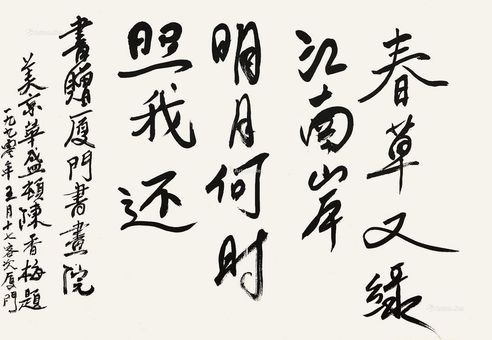 春草又緑
江南山岸
明月何时
照我还
書贈厦門書畫院
美京華盛頓陳香梅題
一九九零年五月十七客次厦門